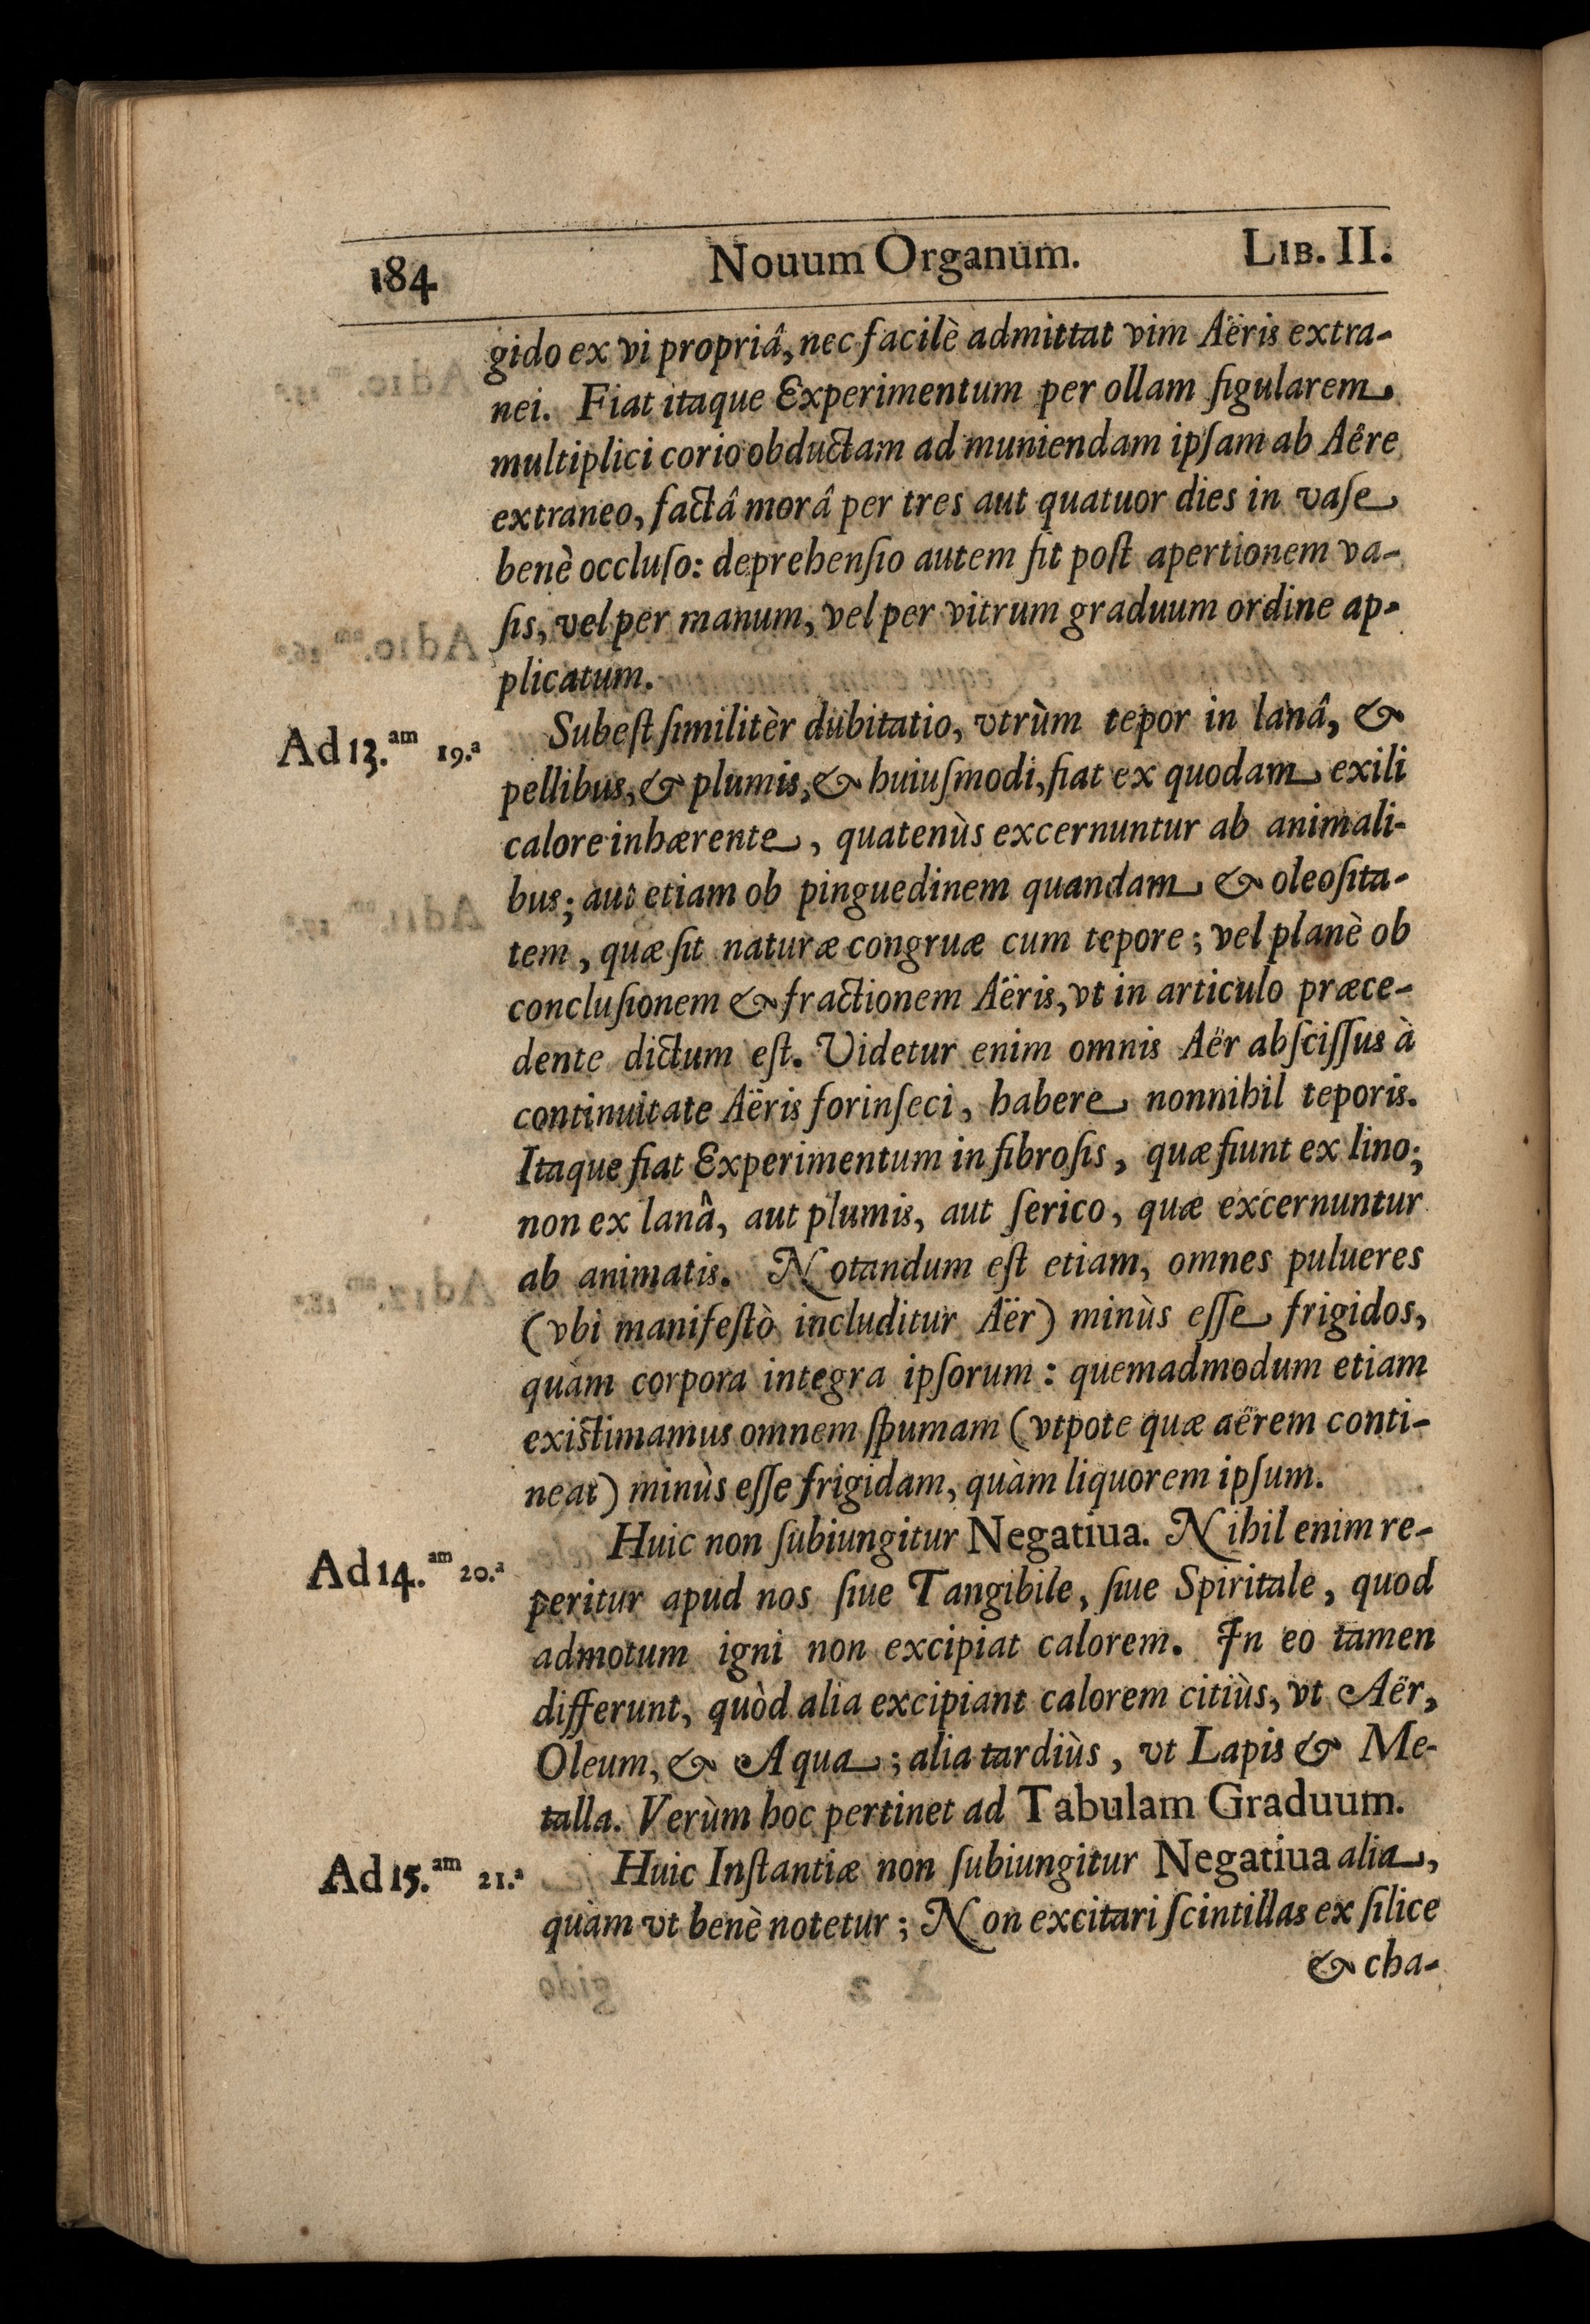 184 Nouum Organum. LIB. II.
gido ex vi propriâ, nec facilè admittat vim Aëris extra-
nei. Fiat itaque Experimentum per ollam figularem
multiplici corio obductam ad muniendam ipſam ab Aëre
extraneo, factâ morâ per tres aut quatuor dies in vaſe
benè occluſo: deprehenſio autem fit poſt apertionem va-
ſis, vel per manum, vel per vitrum graduum ordine ap-
plicatum.
Ad 13.am 19.a Subeſt ſimilitèr dubitatio, vtrùm tepor in lanâ, &
pellibus, & plumis, & huiuſmodi, fiat ex quodam exili
calore inhærente, quatenùs excernuntur ab animali-
bus; aut etiam ob pinguedinem quandam & oleoſita-
tem, quæ ſit naturæ congruæ cum tepore; vel planè ob
concluſionem & fractionem Aëris, vt in articulo præce-
dente dictum eſt. Videtur enim omnis Aër abſciſſus à
continuitate Aëris forinſeci, habere nonnihil teporis.
Itaque fiat Experimentum in fibroſis, quæ fiunt ex lino;
non ex lanâ, aut plumis, aut ſerico, quæ excernuntur
ab animatis. Notandum eſt etiam, omnes pulueres
(vbi manifeſtò includitur Aër) minùs eſſe frigidos,
quàm corpora integra ipſorum: quemadmodum etiam
exiſtimamus omnem ſpumam (vtpote quæ aërem conti-
neat) minùs eſſe frigidam, quàm liquorem ipſum.
Ad 14.am 20.a Huic non ſubiungitur Negatiua. Nihil enim re-
peritur apud nos ſiue Tangibile, ſiue Spiritale, quod
admotum igni non excipiat calorem. In eo tamen
differunt, quòd alia excipiant calorem citiùs, vt Aër,
Oleum, & Aqua; alia tardiùs, vt Lapis & Me-
talla. Verùm hoc pertinet ad Tabulam Graduum.
Ad 15.am 21.a Huic Inſtantiæ non ſubiungitur Negatiua alia,
quàm vt benè notetur; Non excitari ſcintillas ex ſilice
& cha-